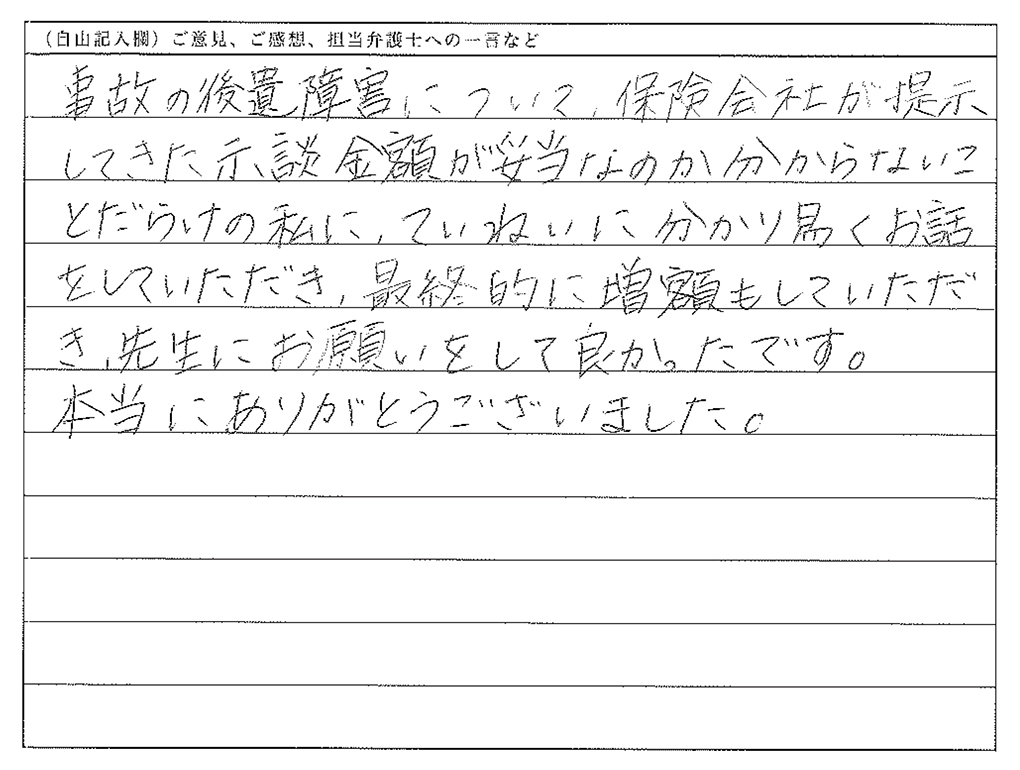 （自由記入欄）ご意見、ご感想、担当弁護士への一言など
事故の後遺障害について、保険会社が提示
してきた示談金額が妥当なのか分からないこ
とだらけの私に、ていねいに分かり易くお話
をしていただき、最終的に増額もしていただ
き、先生にお願いをして良かったです。
本当にありがとうございました。